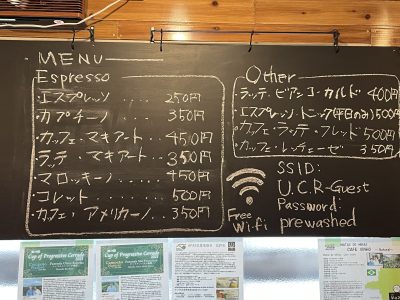 MENU
Espresso
・エスプレッソ ..... 250円
・カプチーノ ..... 350円
・カフェ・マキアート .. 450円
・ラテ・マキアート ... 350円
・マロッキーノ ..... 450円
・コレット ....... 500円
・カフェ・アメリカーノ.. 350円
Other
・ラッテ・ビアンコ・カルド 400円
・エスプレッソ・トニック(平日のみ)500円
・カフェ・ラッテ・フレッド 500円
・カッフェ・レッチェーゼ 350円
SSID:
U.C.R-Guest
Password:
prewashed
Free
Wi-fi
Cup of Progressive Cerrado
Cup of Progressive Cerrado